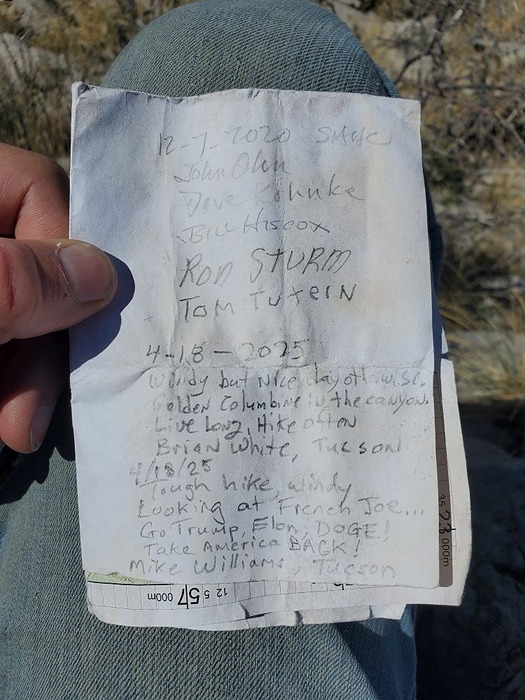 12-7-2020
John Ohn
Dave Kohnke
Bill Hiscox
Ron STURM
Tom Tuxein
4-18-2025
Windy but Nice day otherwise.
Golden Columbine in the canyon.
Live Long, Hike often
Brian White, Tucson
4/18/25
Tough hike, windy
Looking at French Joe...
Go Trump, Elon, DOGE!
Take America BACK!
Mike Williams, Tucson
12 5 57 000m
35 23 000m